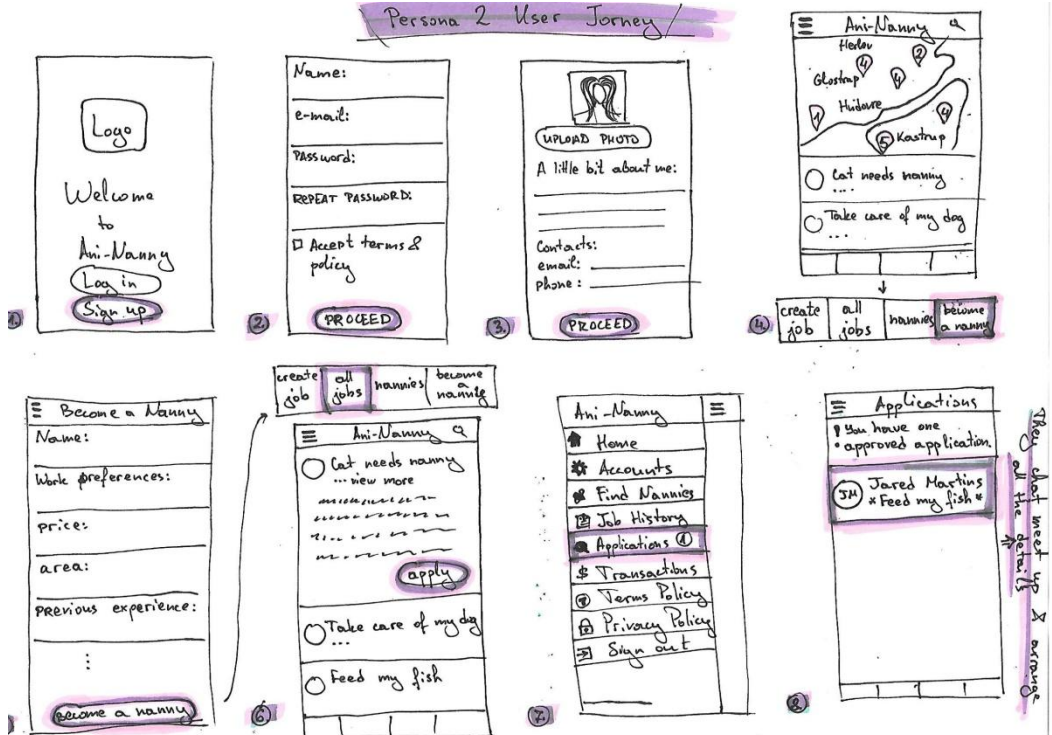 Persona 2 User Jorney
Logo
Welcome
to
Ani-Nanny
Log in
Sign up
1.
Name:
e-mail:
PASSword:
REPEAT PASSWORD:
Accept terms &
policy
PROCEED
2.
UPLOAD PHOTO
A little bit about me:
Contacts:
email:
phone:
PROCEED
3.
Ani-Nanny
Herlev
2
4
Glostrup
4
Hvidovre
1
4
5 Kastrup
Cat needs nanny
....
Take care of my dog
...
4.
create job
all jobs
nannies
become a nanny
Become a Nanny
Name:
Work preferences:
price:
area:
PREVIOUS experience:
Become a nanny
create job
all jobs
nannies
become a nannie
Ani-Nanny
Cat needs nanny
... view more
apply
Take care of my dog
Feed my fish
6.
Ani-Nanny
Home
Accounts
Find Nannies
Job History
Applications 1
$ Transactions
Terms Policy
Privacy Policy
Sign out
7.
Applications
! You have one
approved application.
JM
Jared Martins
*Feed my fish*
8.
They chat meet up & arrange
all the details